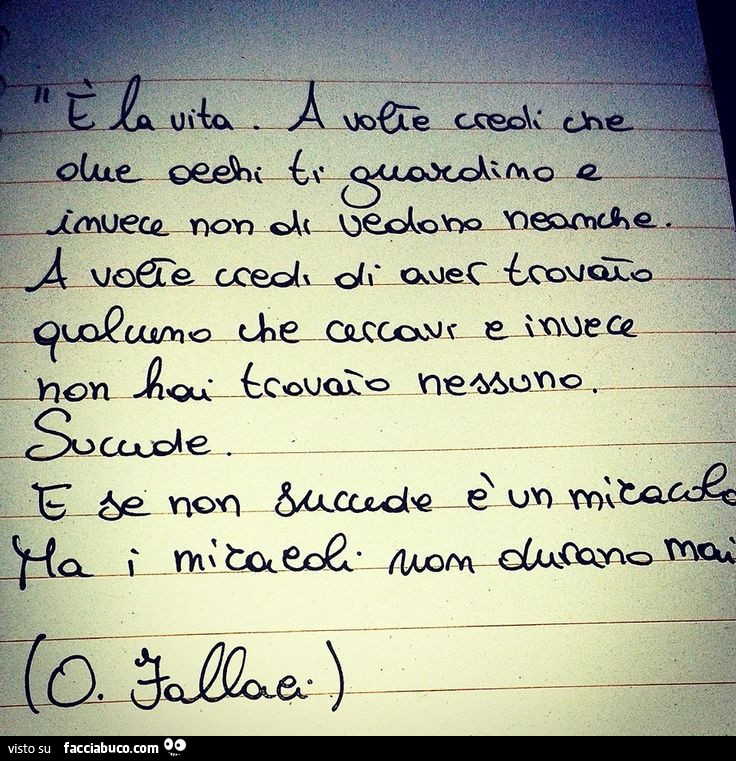 "È la vita. A volte credi che
due occhi ti guardino e
invece non di vedono neanche.
A volte credi di aver trovato
qualcuno che cercavi e invece
non hai trovato nessuno.
Succede.
E se non succede è un miracolo
Ma i miracoli non durano mai
(O. Fallaci)
visto su facciabuco.com